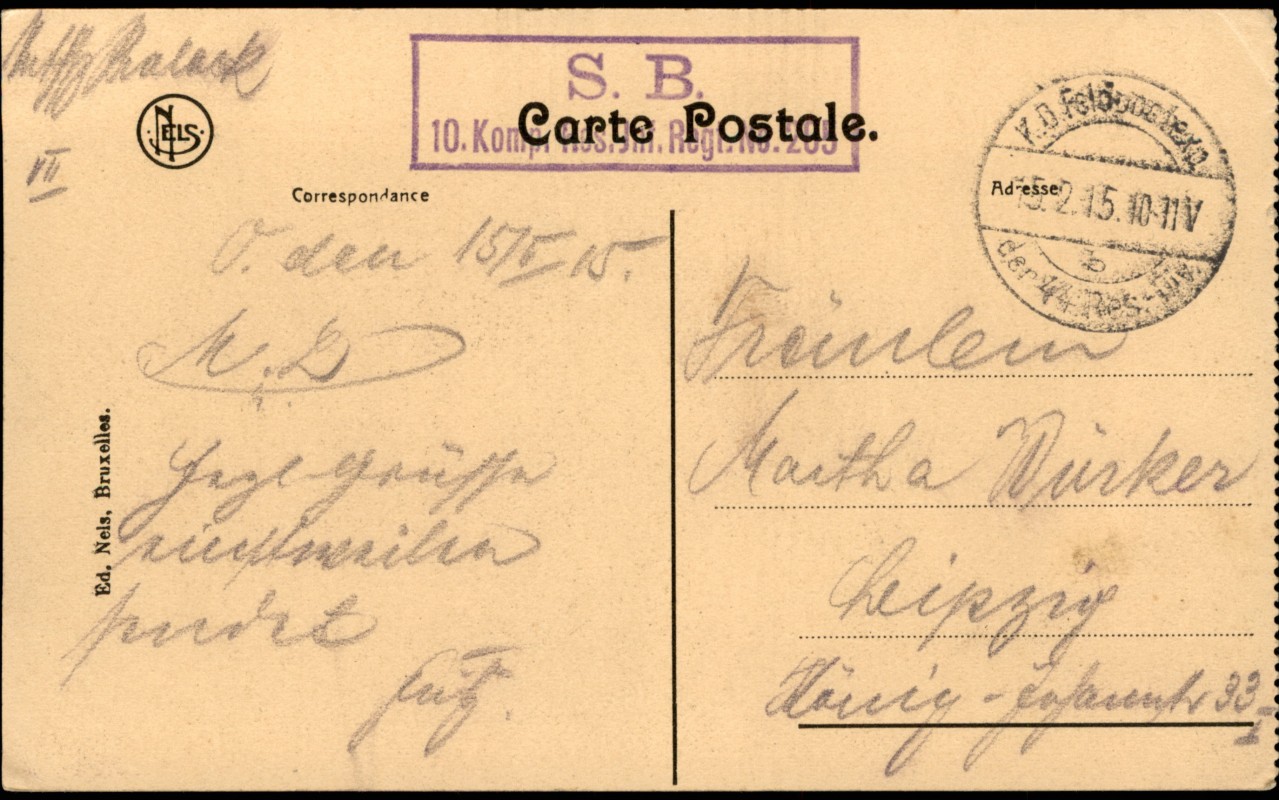 VII
NELS
S. B.
10. Komp. Res. Inf. Regt. No. 205
Carte Postale.
K.D. Feldpostexp.
15.2.15. 10-11 V
b
der 44. Res.-Div.
Correspondance
Adresse
O. den 15/II 15.
M. L
Herzl. Grüsse
einstweilen
sendet
Fritz.
Fräulein
Martha Würker
Leipzig
König-Johannstr 33 I
Ed. Nels, Bruxelles.